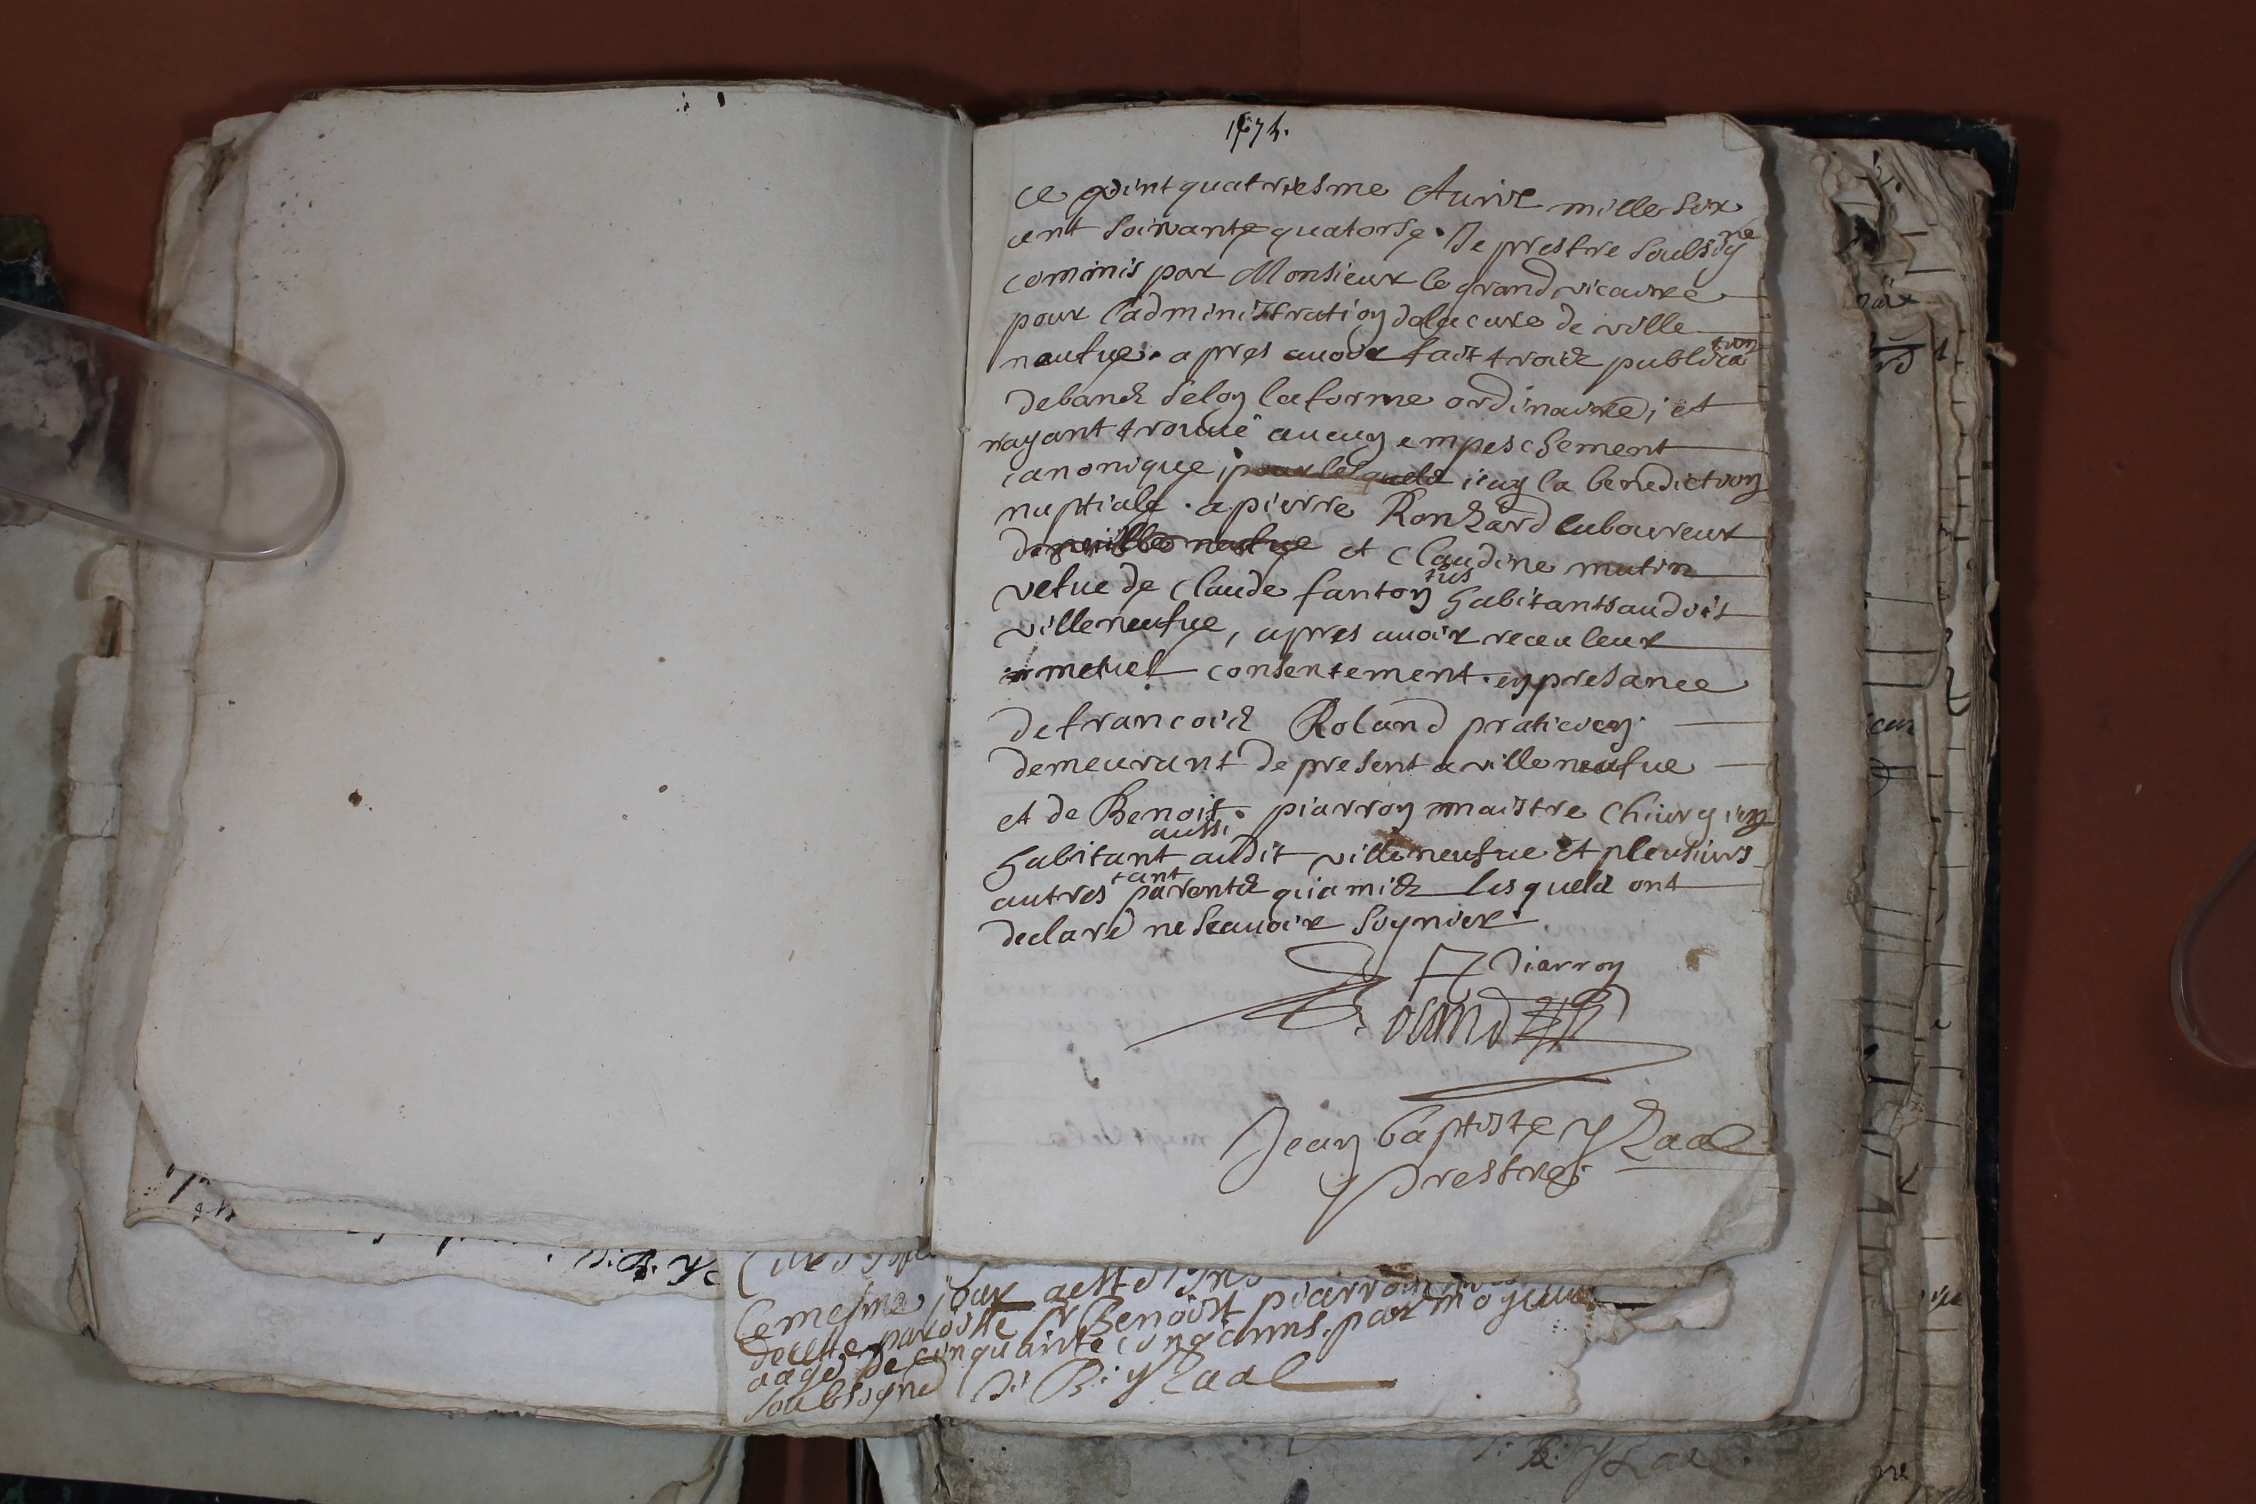 1674.
ce vint quatriesme Auril mille six
cent soixante quatorse. Je prestre soubsigné
commis par Monsieur le grand vicaire
pour l'administration de la cure de ville
neufue. apres auoir fait trois publication
de bans selon la forme ordinaire, et
nayant trouué aucun empeschement
canonique, pour lesquels iay la benediction
nuptiale. a pierre Ronzard laboureur
de villeneufue et Claudine mutin
vefue de Claude fanton tus habitants audit
villeneufue, apres auoir receu leur
metuel consentement. en presance
de francois Roland praticien
demeurant de present a villeneufue
et de Benoit piarron maistre Chiurgien
habitant aussi audit villeneufue et pleusiurs
autres tant parents qu'amis lesquels ont
declaré ne scauoir signier.
Piarron
Roland
Jean baptiste ysaac
prestre
Ce mesme jour
de cette paroisse Sr Benoist piarron
aagé de cinquante cinq anns. par moy
soubsigné J: B: ysaac
J: B: ysaac